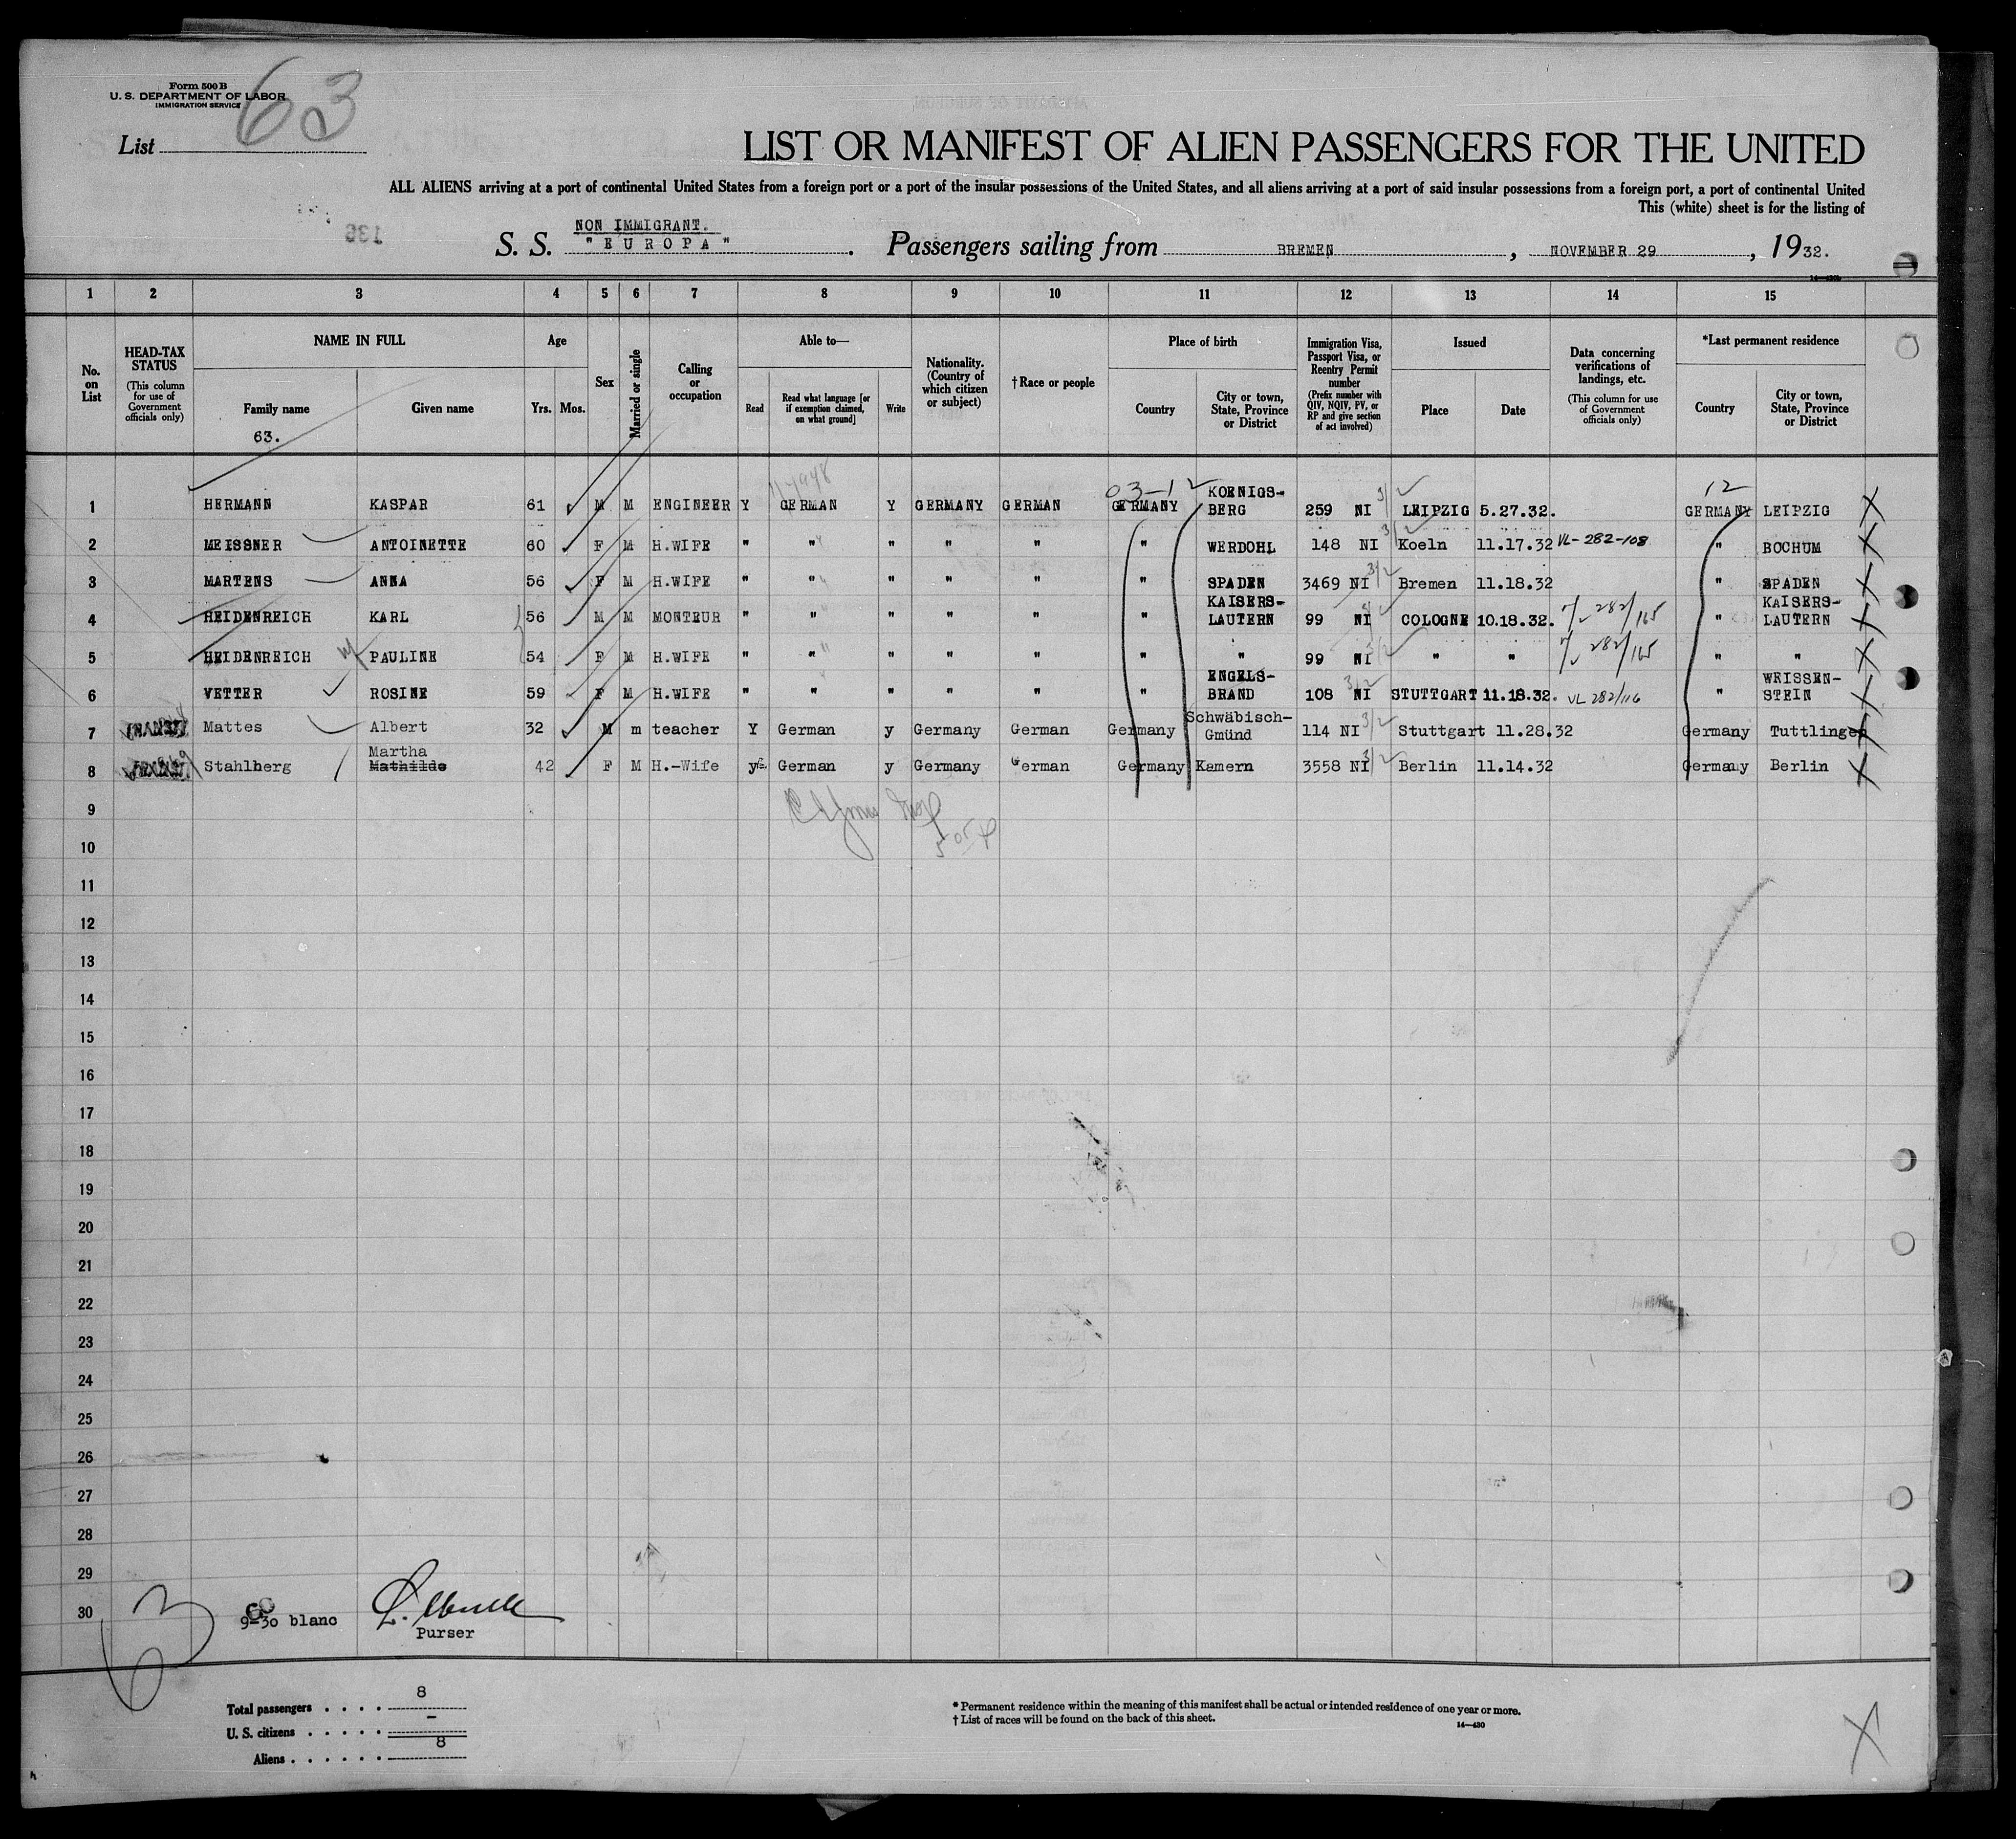 Form 500 B
U. S. DEPARTMENT OF LABOR
IMMIGRATION SERVICE
63
List
LIST OR MANIFEST OF ALIEN PASSENGERS FOR THE UNITED
ALL ALIENS arriving at a port of continental United States from a foreign port or a port of the insular possessions of the United States, and all aliens arriving at a port of said insular possessions from a foreign port, a port of continental United
This (white) sheet is for the listing of
136
NON IMMIGRANT.
S. S. " E U R O P A ". Passengers sailing from BREMEN, NOVEMBER 29, 1932.
1 2 3 4 5 6 7 8 9 10 11 12 13 14 15
No. on List
HEAD-TAX STATUS (This column for use of Government officials only)
NAME IN FULL
Family name
63.
Given name
Age
Yrs. Mos.
Sex
Married or single
Calling or occupation
Able to—
Read
Read what language [or if exemption claimed, on what ground]
Write
Nationality. (Country of which citizen or subject)
† Race or people
Place of birth
Country
City or town, State, Province or District
Immigration Visa, Passport Visa, or Reentry Permit number (Prefix number with QIV, NQIV, PV, or RP and give section of act involved)
Issued
Place
Date
Data concerning verifications of landings, etc. (This column for use of Government officials only)
*Last permanent residence
Country
City or town, State, Province or District
03-12 12
1 HERMANN KASPAR 61 M M ENGINEER Y GERMAN Y GERMANY GERMAN GERMANY KOENIGS-BERG 259 NI 3/2 LEIPZIG 5.27.32. GERMANY LEIPZIG X
2 MEISSNER ANTOINETTE 60 F M H.WIFE " " " " " " WERDOHL 148 NI 3/2 Koeln 11.17.32 VL-282-108 " BOCHUM X
3 MARTENS ANNA 56 F M H.WIFE " " " " " " SPADEN 3469 NI 3/2 Bremen 11.18.32 " SPADEN X
4 HEIDENREICH KARL 56 M M MONTEUR " " " " " " KAISERS-LAUTERN 99 NI COLOGNE 10.18.32. 282/165 " KAISERS-LAUTERN X
5 HEIDENREICH PAULINE 54 F M H.WIFE " " " " " " " 99 NI 3/2 " " 282/165 " " X
6 VETTER ROSINE 59 F M H.WIFE " " " " " " ENGELS-BRAND 108 NI 3/2 STUTTGART 11.18.32. VL 282/116 " WEISSEN-STEIN X
7 Mattes Albert 32 M m teacher Y German y Germany German Germany Schwäbisch-Gmünd 114 NI 3/2 Stuttgart 11.28.32 Germany Tuttlingen X
8 Stahlberg Martha Mathilde 42 F M H.-Wife y German y Germany German Germany Kamern 3558 NI 3/2 Berlin 11.14.32 Germany Berlin X
9
10
11
12
13
14
15
16
17
18
19
20
21
22
23
24
25
26
27
28
29
30
63
9-30 blanc
Purser
Total passengers . . . . 8
U. S. citizens . . . . . –
Aliens . . . . . . 8
* Permanent residence within the meaning of this manifest shall be actual or intended residence of one year or more.
† List of races will be found on the back of this sheet.
14—430
X